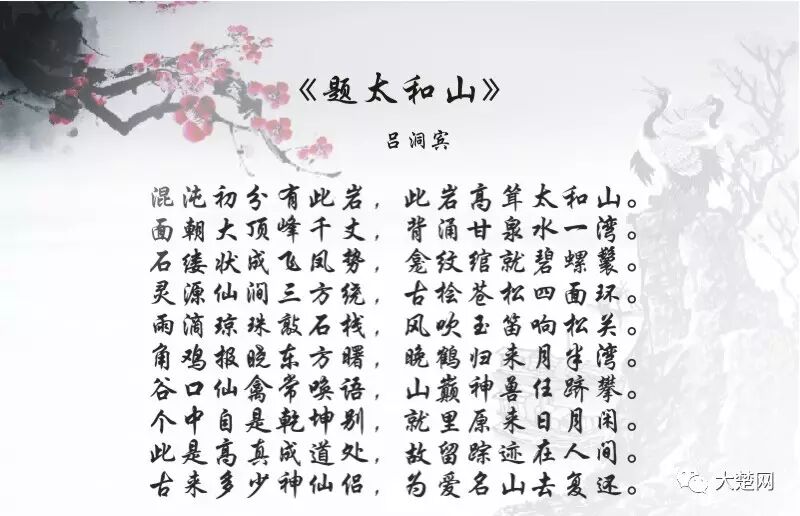 《题太和山》
吕洞宾
混沌初分有此岩，此岩高耸太和山。
面朝大顶峰千丈，背涌甘泉水一湾。
石缕状成飞凤势，龛纹绾就碧螺鬟。
灵源仙涧三方绕，古桧苍松四面环。
雨滴琼珠敲石栈，风吹玉笛响松关。
角鸡报晓东方曙，晚鹤归来月半湾。
谷口仙禽常唤语，山巅神兽任跻攀。
个中自是乾坤别，就里原来日月闲。
此是高真成道处，故留踪迹在人间。
古来多少神仙侣，为爱名山去复还。
大楚网